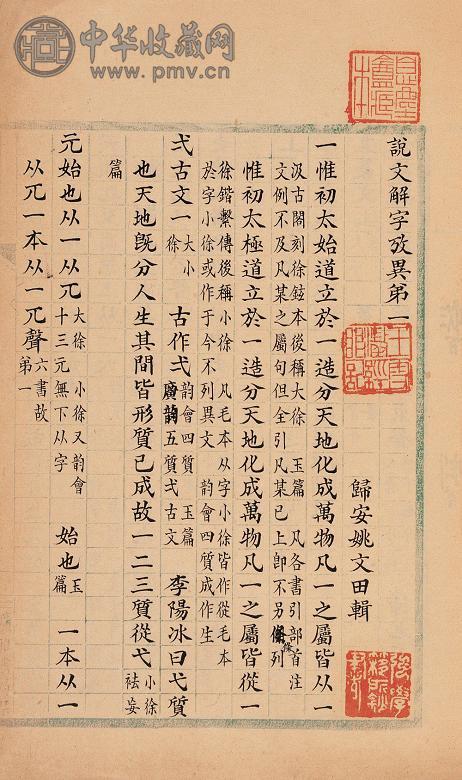 中华收藏网
www.pmv.cn
說文解字攷異弟一
歸安姚文田輯
一惟初太始道立於一造分天地化成萬物凡一之屬皆从一
汲古閣刻徐鉉本後稱大徐 玉篇 凡各書引部首注
文例不及凡某之屬句但全引凡某已上卽不另條列
惟初太極道立於一造分天地化成萬物凡一之屬皆從一
徐鍇繫傳後稱小徐 凡毛本从字小徐皆作從毛本
於字小徐或作于今不列異文 韵會四質成作生
弌古文一
大小
徐
古作弌
韵會四質 玉篇
廣韵五質弌古文
李陽冰曰弋質
也天地旣分人生其間皆形質已成故一二三質從弋
小徐
祛妄
篇
元始也从一从兀
大徐 小徐又韵會
十三元無下从字
始也
玉
篇
一本从一
从兀一本从一兀聲
六書故
弟一